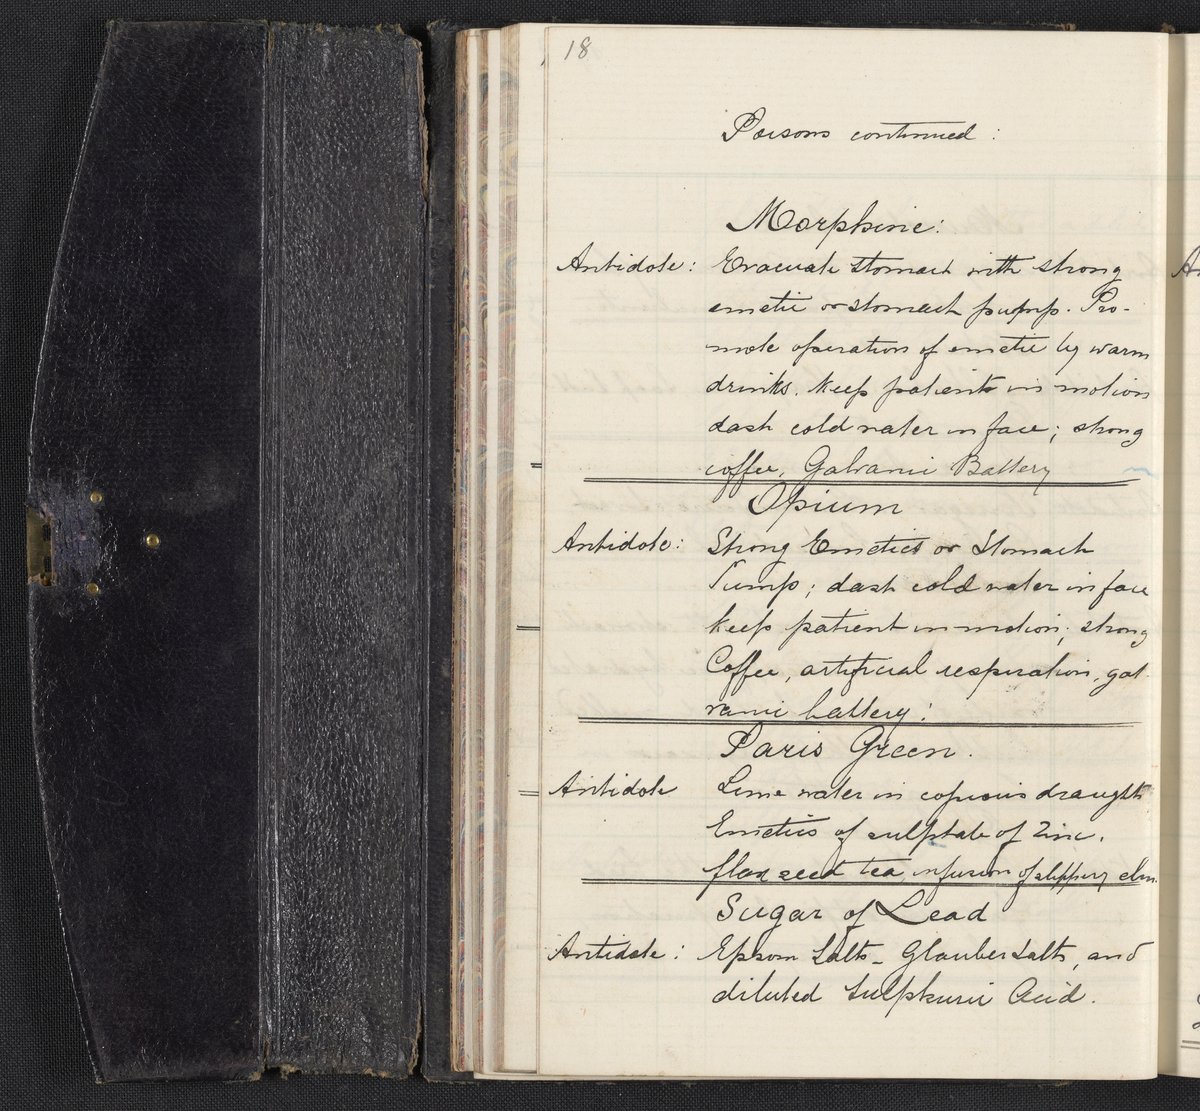 18
Poisons continued :
Morphine:
Antidote: Evacuate Stomach with strong
emetic or stomach pump. Pro-
mote operation of emetic by warm
drinks. Keep patients in motion
dash cold water in face; strong
coffee, Galvanic Battery
Opium
Antidote: Strong Emetics or Stomach
Pump; dash cold water in face
keep patient in motion; strong
Coffee, artificial respiration, gal-
vanic battery:
Paris Green.
Antidote Lime water in copious draughts
Emetics of sulphate of Zinc.
flax seed tea, infusion of slippery elm.
Sugar of Lead
Antidote: Epsom Salts - Glauber Salts, and
diluted Sulphuric Acid.